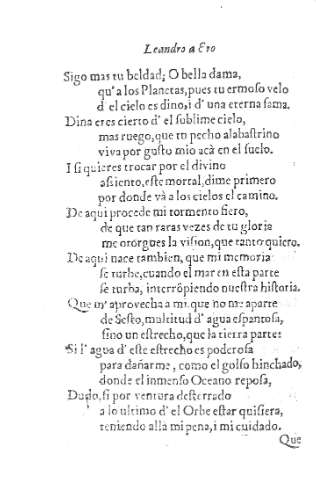 Leandro a Ero
Sigo mas tu beldad; O bella dama,
qu' a los Planetas, pues tu ermoso velo
d el cielo es dino, i d' una eterna fama.
Dina eres cierto d' el sublime cielo,
mas ruego, que tu pecho alabastrino
viva por gusto mio acà en el suelo.
I si quieres trocar por el divino
assiento, este mortal, dime primero
por donde và a los cielos el camino.
De aqui procede mi tormento fiero,
de que tan raras vezes de tu gloria
me otorgues la vision, que tanto quiero.
De aqui nace tambien, que mi memoria
se turbe, cuando el mar en esta parte
se turba, interrõpiendo nuestra historia.
Que m' aprovecha a mi, que no me aparte
de Sesto, multitud d' agua espantosa,
sino un estrecho, que la tierra parte?
Si l' agua d' este estrecho es poderosa
para dañarme, como el golfo hinchado,
donde el inmenso Oceano reposa,
Dudo, si por ventura desterrado
a lo ultimo d' el Orbe estar quisiera,
teniendo alla mi pena, i mi cuidado.
Que